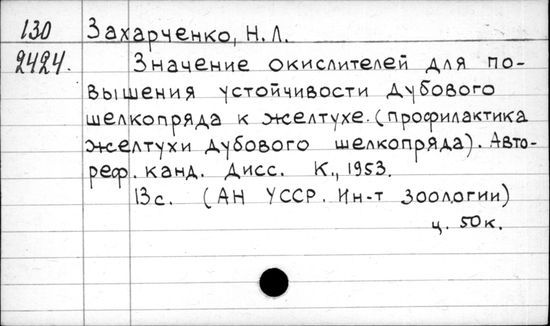 130 Захарченко, Н.Л.
2424. Значение окислителей для по-
вышения устойчивости дубового
шелкопряда к желтухе. (профилактика
желтухи дубового шелкопряда). Авто-
реф. канд. дисс. К., 1953.
13с. (АН УССР. Ин-т зоологии)
ц. 50к.